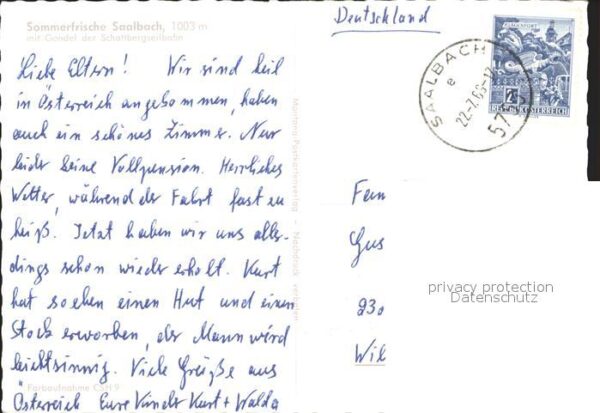 Sommerfrische Saalbach, 1003 m
mit Gondel der Schattbergseilbahn
Liebe Eltern! Wir sind heil
in Österreich angekommen, haben
auch ein schönes Zimmer. Nur
leider keine Vollpension. Herrliches
Wetter, während der Fahrt fast zu
heiß. Jetzt haben wir uns aller-
dings schon wieder erholt. Kurt
hat soeben einen Hut und einen
Stock erworben, der Mann wird
leichtsinnig. Viele Grüße aus
Österreich Eure Kinder Kurt + Walda
Farbaufnahme
Nachdruck verboten
Deutschland
SAALBACH
e
22-7.66-17
57
KLAGENFURT
REPUBLIK ÖSTERREICH
Fam
Gus
230
Wil
privacy protection
Datenschutz